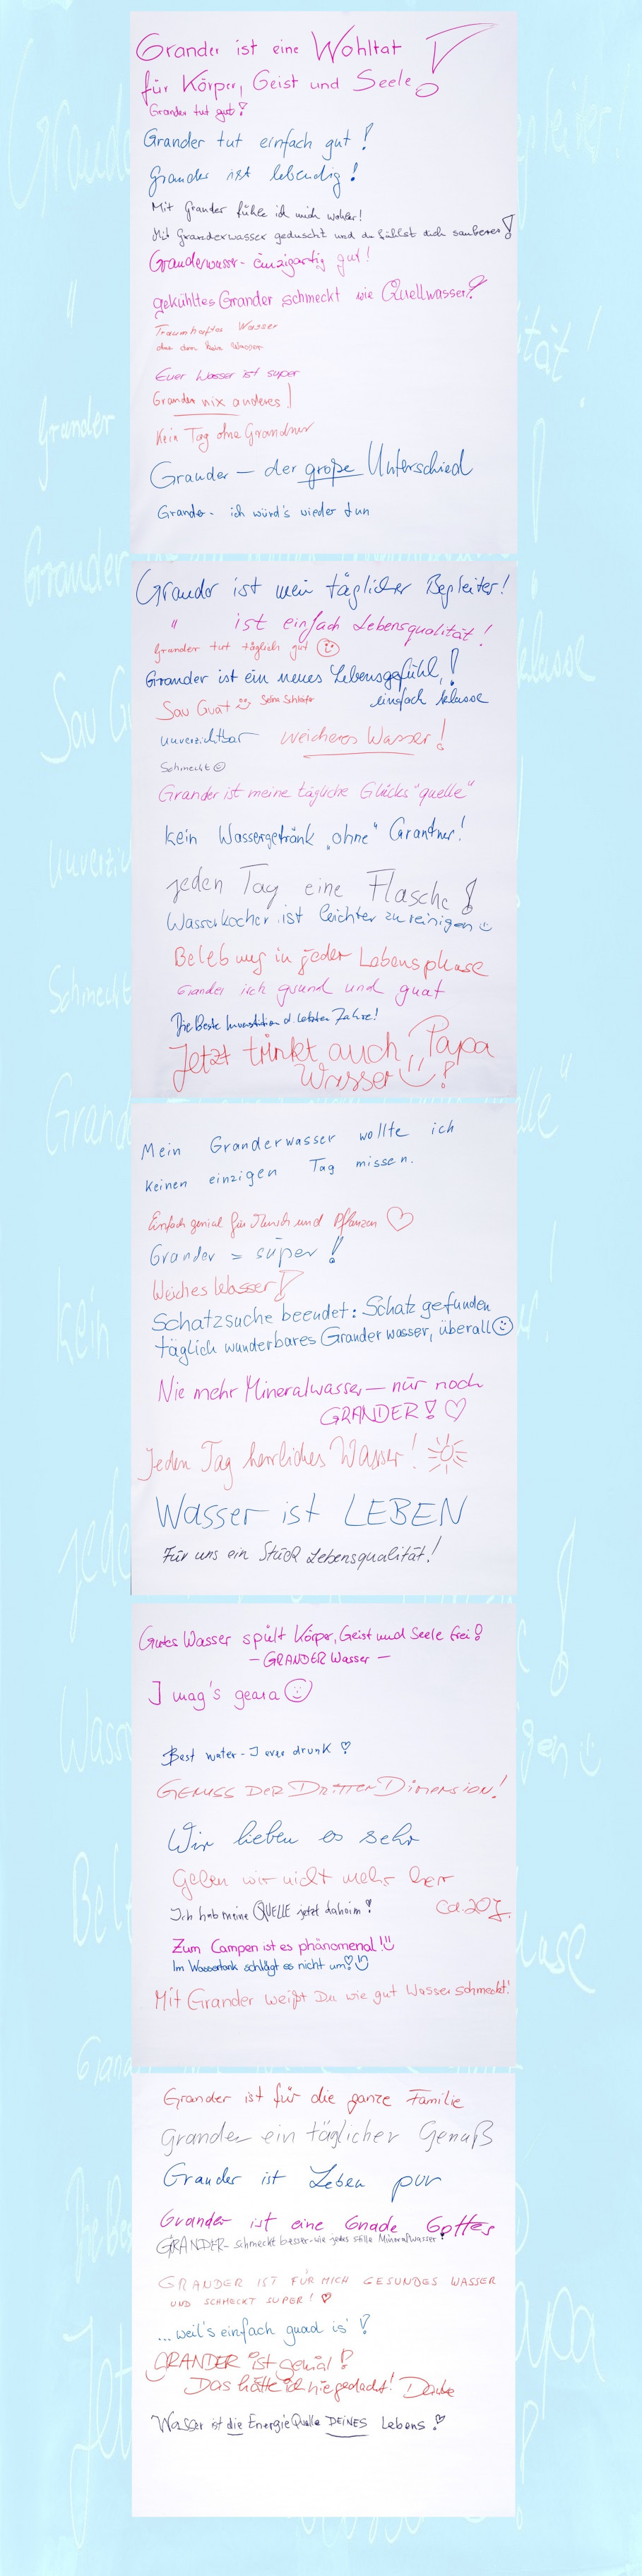 Grander ist eine Wohltat
für Körper, Geist und Seele!
Grander tut gut!
Grander tut einfach gut!
Grander ist lebendig!
Mit Grander fühle ich mich wohler!
Mit Granderwasser geduscht und du fühlst dich sauberer!
Granderwasser - einzigartig gut!
gekühltes Grander schmeckt wie Quellwasser!
Traumhaftes Wasser
Wasser
Euer Wasser ist super
Grander nix anderes!
Kein Tag ohne Grandner
Grander – der große Unterschied
Grander - ich würd's wieder tun
Grander ist mein täglicher Begleiter!
" ist einfach Lebensqualität!
Grander tut täglich gut ☺
Grander ist ein neues Lebensgefühl,!
einfach klasse
Sau Guat ☺
unverzichtbar weicheres Wasser!
Schmeckt ☺
Grander ist meine tägliche Glücks"quelle"
kein Wassergetränk „ohne" Grantner!
jeden Tag eine Flasche!
Wasserkocher ist leichter zu reinigen ☺
Belebung in jeder Lebensphase
Grander isch gsund und guat
Die Beste Investition d. letzten Jahre!
Jetzt trinkt auch Papa
Wasser ☺!
Mein Granderwasser wollte ich
keinen einzigen Tag missen.
Einfach genial für Mensch und Pflanzen ♡
Grander = super!
Weiches Wasser!
Schatzsuche beendet: Schatz gefunden
täglich wunderbares Granderwasser, überall ☺
Nie mehr Mineralwasser – nur noch
GRANDER! ♡
Jeden Tag herrliches Wasser!
Wasser ist LEBEN
Für uns ein Stück Lebensqualität!
Gutes Wasser spült Körper, Geist und Seele frei!
– GRANDER Wasser –
I mag's geara ☺
Best water - I ever drunk!
GENUSS DER DRITTEN DIMENSION!
Wir lieben es sehr
Geben wir nicht mehr her
ca. 20 J.
Ich hab meine QUELLE jetzt dahoim!
Zum Campen ist es phänomenal! ☺
Im Wassertank schlägt es nicht um! ☺
Mit Grander weißt Du wie gut Wasser schmeckt!
Grander ist für die ganze Familie
Grander ein täglicher Genuß
Grander ist Leben pur
Grander ist eine Gnade Gottes
GRANDER - schmeckt besser wie jedes stille Mineralwasser!
GRANDER IST FÜR MICH GESUNDES WASSER
UND SCHMECKT SUPER! ♡
...weil's einfach guad is'!
GRANDER ist genial!
Das hätte ich nie gedacht! Danke
Wasser ist die EnergieQuelle DEINES Lebens!